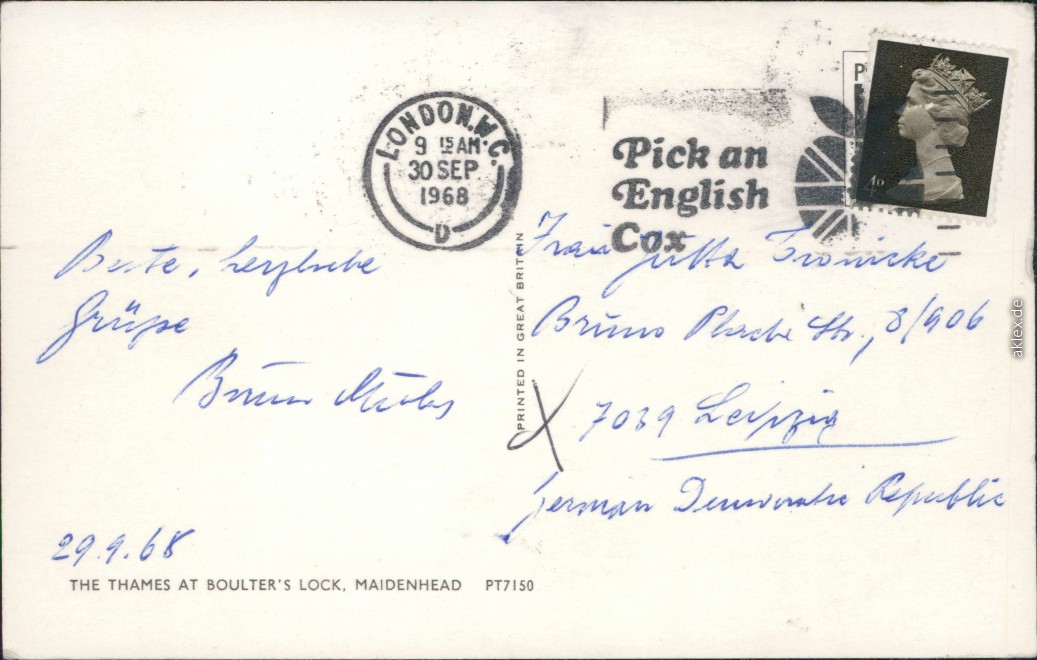 LONDON.W.C.
9 15 AM
30 SEP
1968
D
Pick an
English
Cox
P
4D
Beste, herzliche
Grüße
Bruno
29.9.68
THE THAMES AT BOULTER'S LOCK, MAIDENHEAD PT7150
PRINTED IN GREAT BRITAIN
Frau Jutta Tronicke
Bruno Plache Str., 8/906
7039 Leipzig
German Democratic Republic
aklex.de